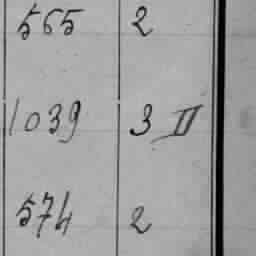 565 2
1039 3 II
574 2